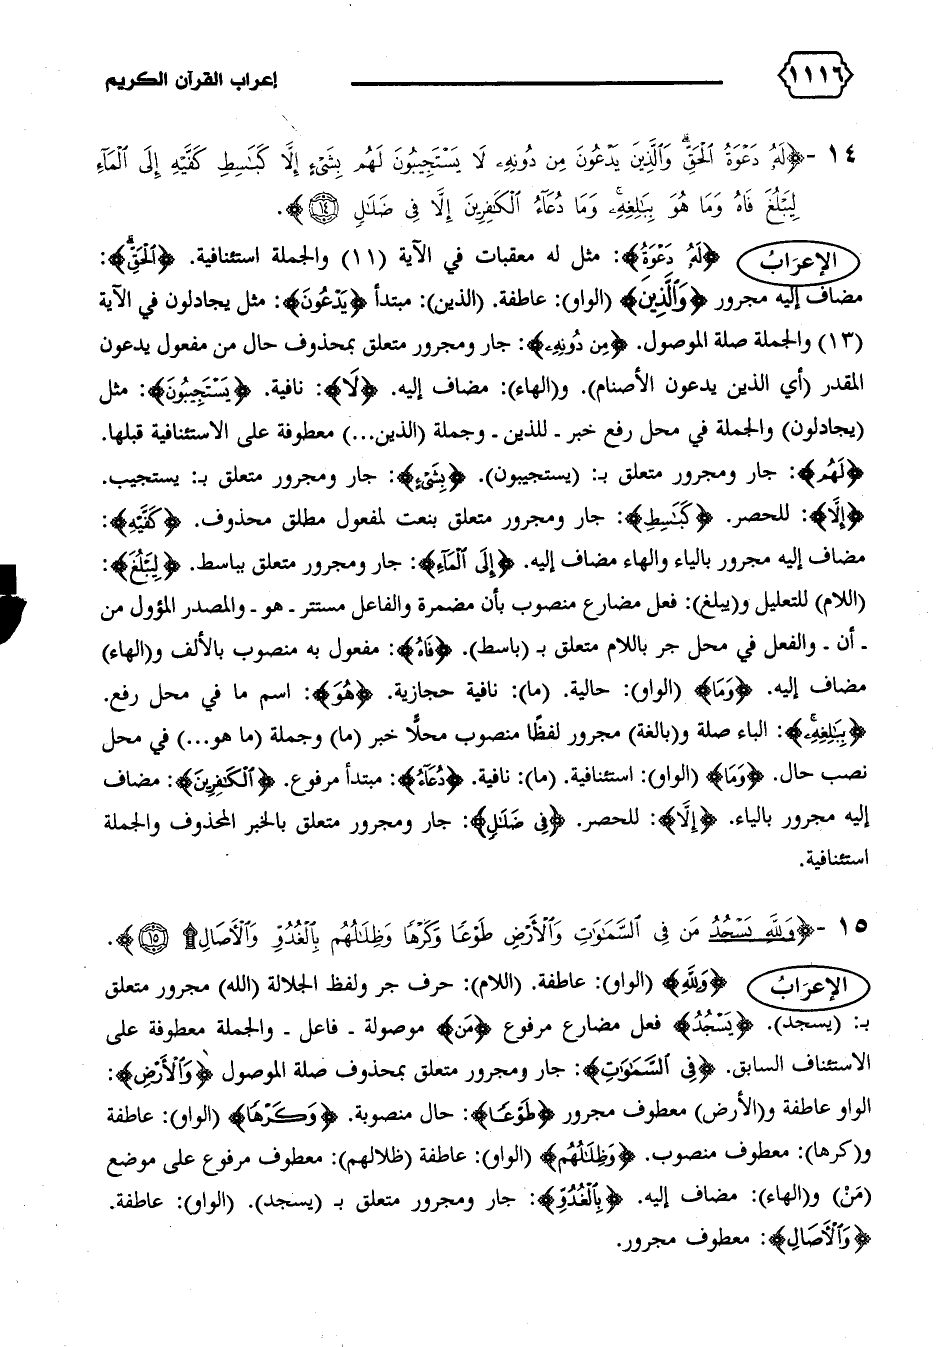 ١١١٦ إعراب القرآن الكريم
١٤ -﴿لَهُۥ دَعْوَةُ ٱلْحَقِّۖ وَٱلَّذِينَ يَدْعُونَ مِن دُونِهِۦ لَا يَسْتَجِيبُونَ لَهُم بِشَىْءٍ إِلَّا كَبَـٰسِطِ كَفَّيْهِ إِلَى ٱلْمَآءِ
لِيَبْلُغَ فَاهُ وَمَا هُوَ بِبَـٰلِغِهِۦۚ وَمَا دُعَآءُ ٱلْكَـٰفِرِينَ إِلَّا فِى ضَلَـٰلٍ ١٤﴾.
الإعرَابُ ﴿لَهُۥ دَعْوَةُ﴾: مثل له معقبات في الآية (١١) والجملة استئنافية. ﴿ٱلْحَقِّۖ﴾:
مضاف إليه مجرور ﴿وَٱلَّذِينَ﴾ (الواو): عاطفة. (الذين): مبتدأ ﴿يَدْعُونَ﴾: مثل يجادلون في الآية
(١٣) والجملة صلة الموصول. ﴿مِن دُونِهِۦ﴾: جار ومجرور متعلق بمحذوف حال من مفعول يدعون
المقدر (أي الذين يدعون الأصنام). و(الهاء): مضاف إليه. ﴿لَا﴾: نافية. ﴿يَسْتَجِيبُونَ﴾: مثل
(يجادلون) والجملة في محل رفع خبر ـ للذين ـ وجملة (الذين...) معطوفة على الاستئنافية قبلها.
﴿لَهُم﴾: جار ومجرور متعلق بـ: (يستجيبون). ﴿بِشَىْءٍ﴾: جار ومجرور متعلق بـ: يستجيب.
﴿إِلَّا﴾: للحصر. ﴿كَبَـٰسِطِ﴾: جار ومجرور متعلق بنعت لمفعول مطلق محذوف. ﴿كَفَّيْهِ﴾:
مضاف إليه مجرور بالياء والهاء مضاف إليه. ﴿إِلَى ٱلْمَآءِ﴾: جار ومجرور متعلق بباسط. ﴿لِيَبْلُغَ﴾:
(اللام) للتعليل و(يبلغ): فعل مضارع منصوب بأن مضمرة والفاعل مستتر ـ هو ـ والمصدر المؤول من
ـ أن ـ والفعل في محل جر باللام متعلق بـ (باسط). ﴿فَاهُ﴾: مفعول به منصوب بالألف و(الهاء)
مضاف إليه. ﴿وَمَا﴾ (الواو): حالية. (ما): نافية حجازية. ﴿هُوَ﴾: اسم ما في محل رفع.
﴿بِبَـٰلِغِهِۦۚ﴾: الباء صلة و(بالغة) مجرور لفظًا منصوب محلًّا خبر (ما) وجملة (ما هو...) في محل
نصب حال. ﴿وَمَا﴾ (الواو): استئنافية. (ما): نافية. ﴿دُعَآءُ﴾: مبتدأ مرفوع. ﴿ٱلْكَـٰفِرِينَ﴾: مضاف
إليه مجرور بالياء. ﴿إِلَّا﴾: للحصر. ﴿فِى ضَلَـٰلٍ﴾: جار ومجرور متعلق بالخبر المحذوف والجملة
استئنافية.
١٥ -﴿وَلِلَّهِ يَسْجُدُ مَن فِى ٱلسَّمَـٰوَٰتِ وَٱلْأَرْضِ طَوْعًا وَكَرْهًا وَظِلَـٰلُهُم بِٱلْغُدُوِّ وَٱلْأَصَالِ۩ ١٥﴾.
الإعرَابُ ﴿وَلِلَّهِ﴾ (الواو): عاطفة. (اللام): حرف جر ولفظ الجلالة (الله) مجرور متعلق
بـ: (يسجد). ﴿يَسْجُدُ﴾ فعل مضارع مرفوع ﴿مَن﴾ موصولة ـ فاعل ـ والجملة معطوفة على
الاستئناف السابق. ﴿فِى ٱلسَّمَـٰوَٰتِ﴾: جار ومجرور متعلق بمحذوف صلة الموصول ﴿وَٱلْأَرْضِ﴾:
الواو عاطفة و(الأرض) معطوف مجرور ﴿طَوْعًا﴾: حال منصوبة. ﴿وَكَرْهًا﴾ (الواو): عاطفة
و(كرها): معطوف منصوب. ﴿وَظِلَـٰلُهُم﴾ (الواو): عاطفة (ظلالهم): معطوف مرفوع على موضع
(مَنْ) و(الهاء): مضاف إليه. ﴿بِٱلْغُدُوِّ﴾: جار ومجرور متعلق بـ (يسجد). (الواو): عاطفة.
﴿وَٱلْأَصَالِ﴾: معطوف مجرور.